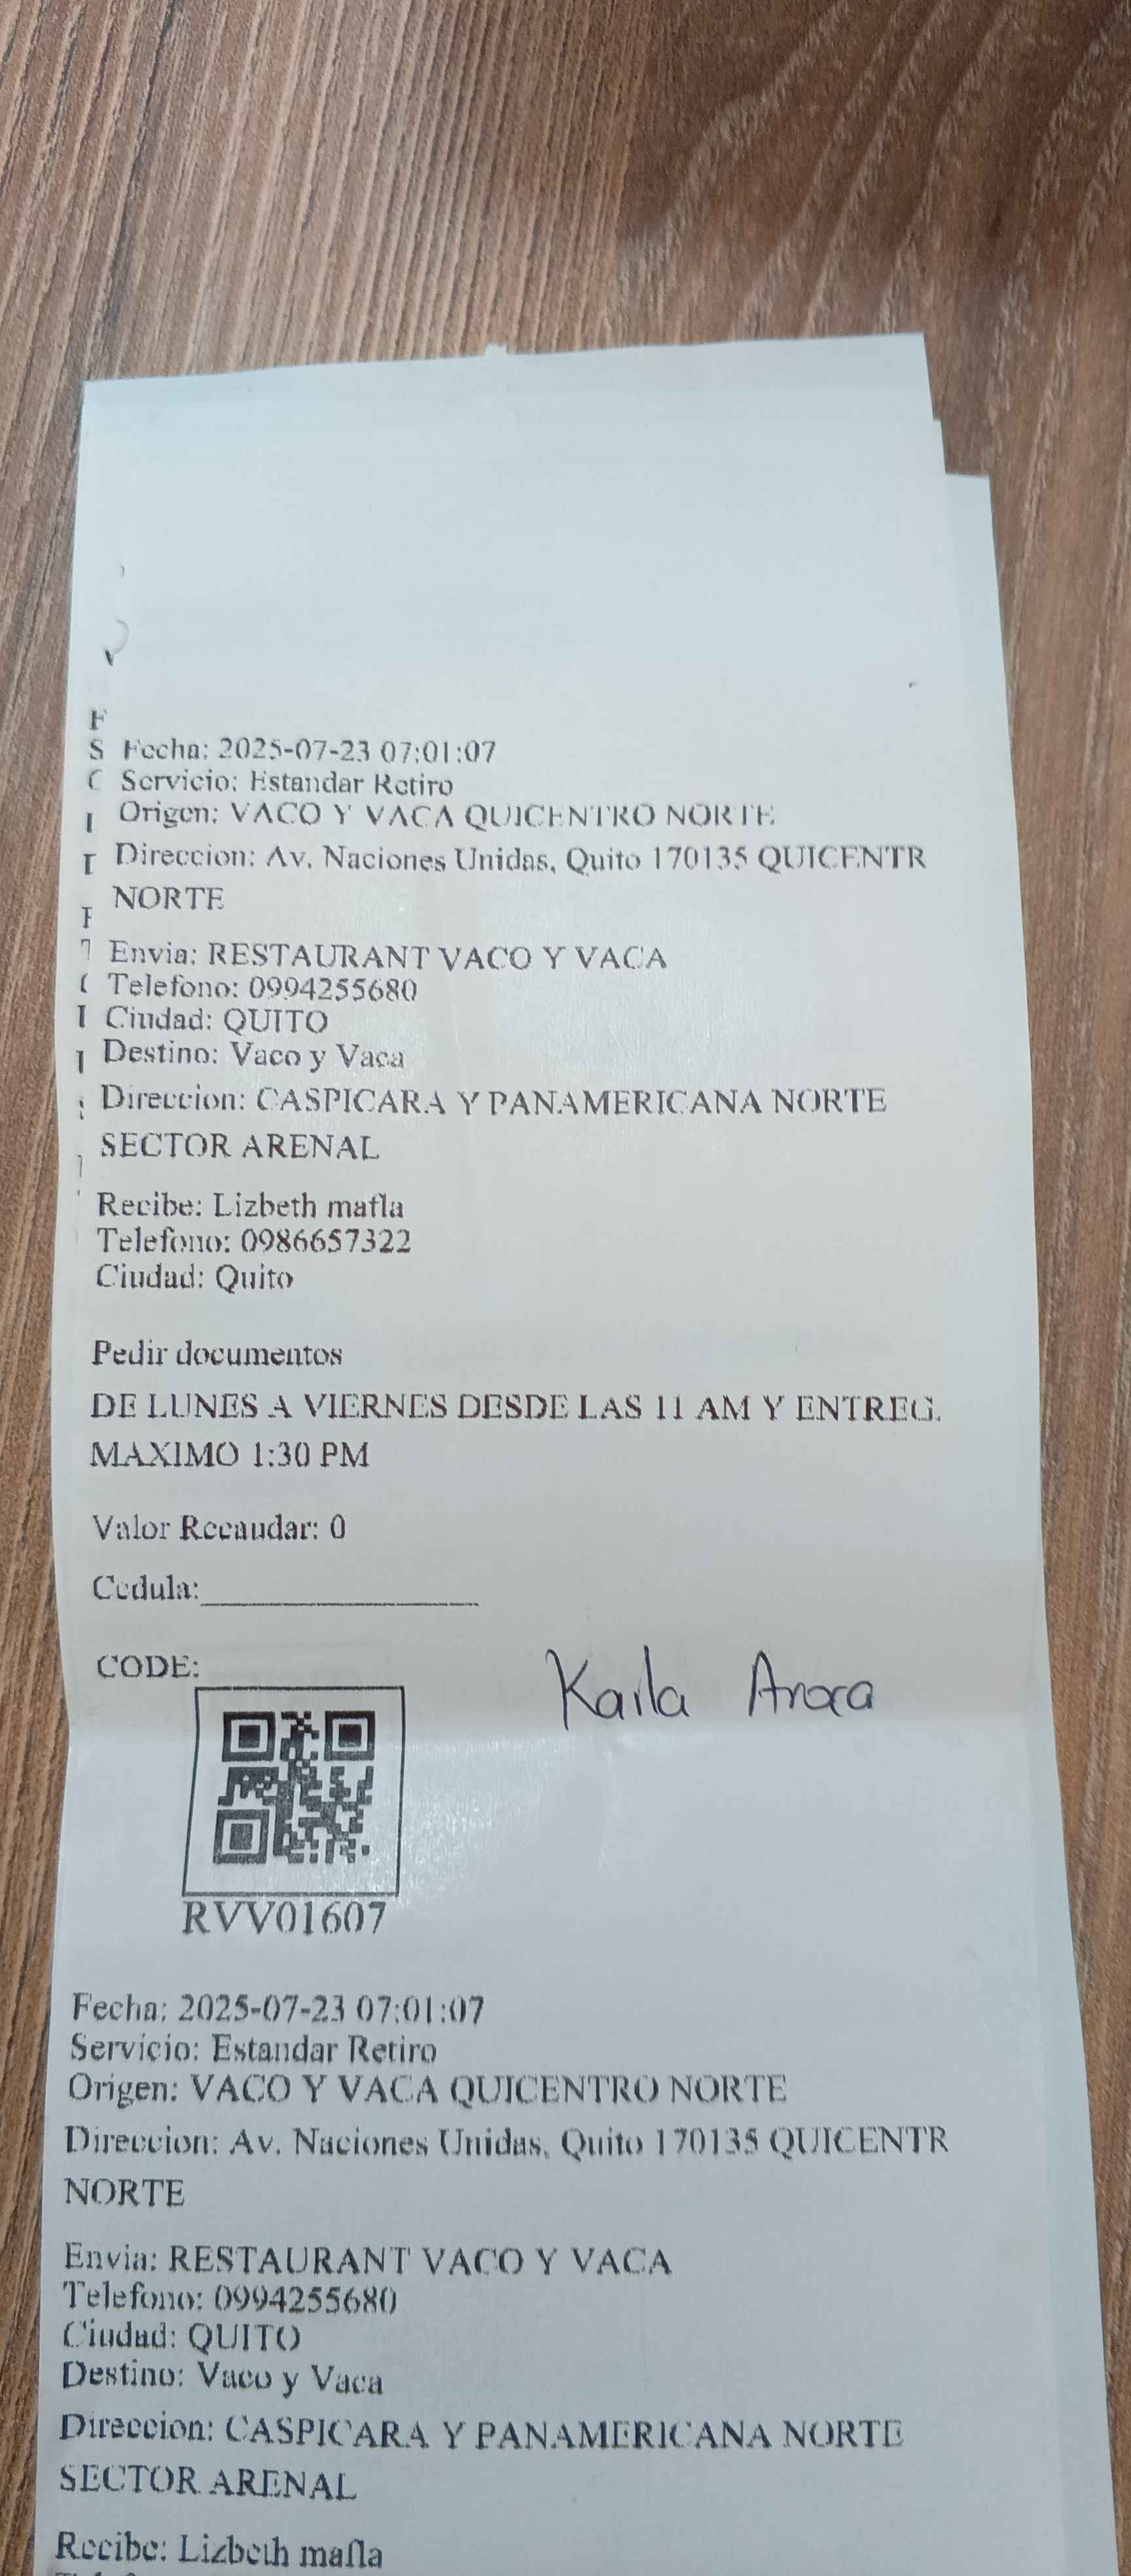 Fecha: 2025-07-23 07:01:07
Servicio: Estandar Retiro
Origen: VACO Y VACA QUICENTRO NORTE
Direccion: Av. Naciones Unidas, Quito 170135 QUICENTR
NORTE
Envia: RESTAURANT VACO Y VACA
Telefono: 0994255680
Ciudad: QUITO
Destino: Vaco y Vaca
Direccion: CASPICARA Y PANAMERICANA NORTE
SECTOR ARENAL
Recibe: Lizbeth mafla
Telefono: 0986657322
Ciudad: Quito
Pedir documentos
DE LUNES A VIERNES DESDE LAS 11 AM Y ENTREG.
MAXIMO 1:30 PM
Valor Recaudar: 0
Cedula:
CODE:
Karla
RVV01607
Fecha: 2025-07-23 07:01:07
Servicio: Estandar Retiro
Origen: VACO Y VACA QUICENTRO NORTE
Direccion: Av. Naciones Unidas, Quito 170135 QUICENTR
NORTE
Envia: RESTAURANT VACO Y VACA
Telefono: 0994255680
Ciudad: QUITO
Destino: Vaco y Vaca
Direccion: CASPICARA Y PANAMERICANA NORTE
SECTOR ARENAL
Recibe: Lizbeth mafla